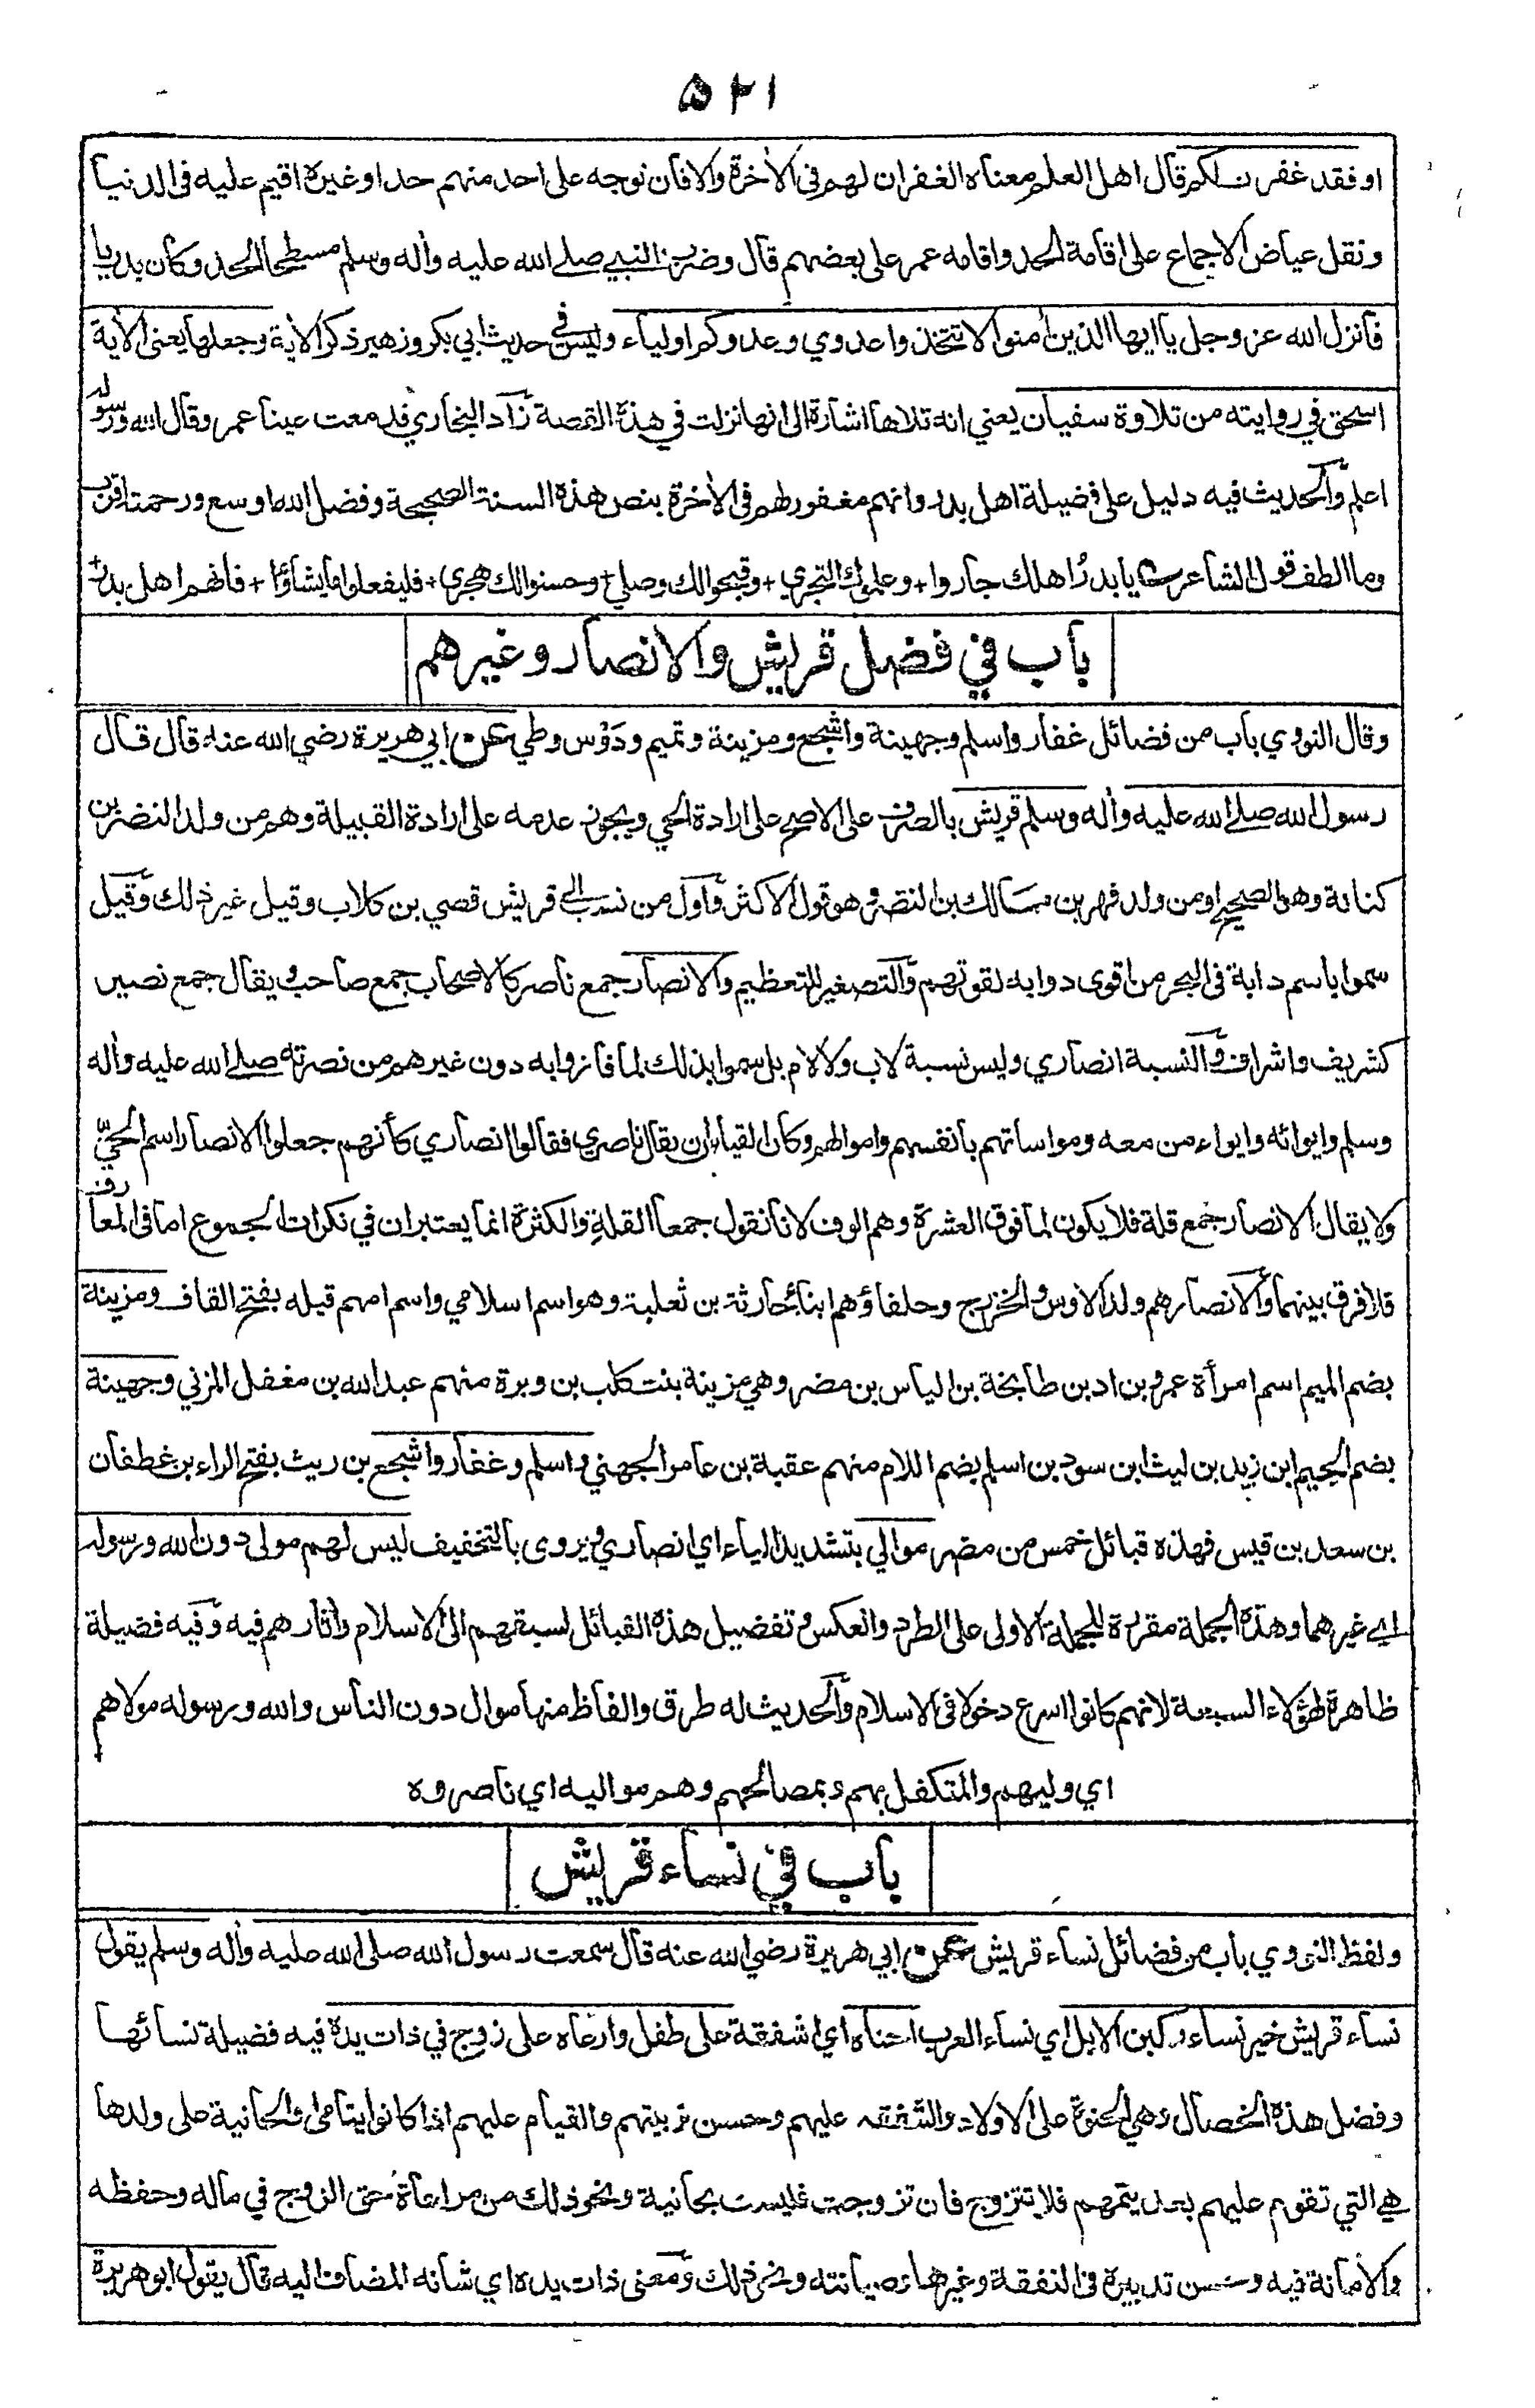 ٥٢١
او فقد غفرت لكم قال اهل العلم معناه الغفران لهم في الآخرة والا فان توجه على احد منهم حد او غيره اقيم عليه في الدنيا
ونقل عياض الاجماع على اقامة الحد واقامه عمر على بعضهم قال وضرب النبي صلى الله عليه وأله وسلم مسطحا الحد وكان بدريا
فانزل الله عز وجل يا ايها الذين أمنوا لا تتخذوا عدوي وعدوكم اولياء وليس في حديث ابي بكر وزهير ذكر الأية وجعلها يعني الأية
اسحق في روايته من تلاوة سفيان يعني انه تلاها اشارة الى انها نزلت في هذه القصة زاد البخاري فدمعت عينا عمر وقال الله ورسوله
اعلم والحديث فيه دليل على فضيلة اهل بدر وانهم مغفور لهم في الأخرة بنص هذه السنة الصحيحة وفضل الله اوسع ورحمته اقرب
وما الطف قول الشاعر يا بدر اهلك جاروا + وعلموك التجري + وقبحوا لك وصلي + وحسنوا لك هجري + فليفعلوا ما يشاؤا + فانهم اهل بدر +
باب في فضل قريش والانصار وغيرهم
وقال النووي باب من فضائل غفار واسلم وجهينة واشجع ومزينة وتميم ودَوْس وطي عن ابي هريرة رضي الله عنه قال قال
رسول الله صلى الله عليه وأله وسلم قريش بالصرف على الاصح على ارادة الحي ويجوز عدمه على ارادة القبيلة وهم من ولد النضر بن
كنانة وهو الصحيح او من ولد فهر بن مالك بن النضر وهو قول الاكثر وأول من نسب الى قريش قصي بن كلاب وقيل غير ذلك وقيل
سموا باسم دابة في البحر من اقوى دوابه لقوتهم والتصغير للتعظيم والانصار جمع ناصر كالاصحاب جمع صاحب ويقال جمع نصير
كشريف واشراف والنسبة انصاري وليس نسبة لاب ولا لام بل سموا بذلك لما فازوا به دون غيرهم من نصرته صلى الله عليه وأله
وسلم وايوائه وايواء من معه ومواساتهم بانفسهم واموالهم وكان القياس ان يقال ناصري فقالوا انصاري كأنهم جعلوا الانصار اسم الحيّ
ولا يقال الانصار جمع قلة فلا يكون لما فوق العشرة وهم الوف لانا نقول جمعا القلة والكثرة انما يعتبران في نكرات الجموع اما في المعارف
فلا فرق بينهما والانصار هم ولد الاوس والخزرج وحلفاؤهم ابنا حارثة بن ثعلبة وهو اسم اسلامي واسم امهم قيله بفتح القاف ومزينة
بضم الميم اسم امرأة عمرو بن اد بن طابخة بن الياس بن مضر وهي مزينة بنت كلب بن وبرة منهم عبد الله بن مغفل المزني وجهينة
بضم الجيم ابن زيد بن ليث ابن سود بن اسلم بضم اللام منهم عقبة بن عامر الجهني واسلم وغفار واشجع بن ريث بفتح الراء بن غطفان
بن سعد بن قيس فهذه قبائل خمس من مضر موالي بتشديد الياء اي انصاري ويروى بالتخفيف ليس لهم مولى دون الله ورسوله
اي غيرهما وهذه الجملة مقررة للجملة الاولى على الطرد والعكس وتفضيل هذه القبائل لسبقهم الى الاسلام وأثارهم فيه وفيه فضيلة
ظاهرة لهؤلاء السبعة لانهم كانوا اسرع دخولا في الاسلام والحديث له طرق والفاظ منها موال دون الناس والله ورسوله مولاهم
اي وليهم والمتكفل بهم وبمصالحهم وهم مواليه اي ناصروه
باب في نساء قريش
ولفظ النووي باب من فضائل نساء قريش عن ابي هريرة رضي الله عنه قال سمعت رسول الله صلى الله عليه وأله وسلم يقول
نساء قريش خير نساء ركبن الابل اي نساء العرب احناه اي اشفقة على طفل وارعاه على زوج في ذات يده فيه فضيلة نسائها
وفضل هذه الخصال وهي الحنوة على الاولاد والشفقه عليهم وحسن تربيتهم والقيام عليهم اذا كانوا يتامى والحانية على ولدها
هي التي تقوم عليهم بعد يتمهم فلا تتزوج فان تزوجت فليست بحانية ونحو ذلك من مراعاة حق الزوج في ماله وحفظه
والأمانة فيه وحسن تدبيره في النفقة وغيرها وصيانته ونحو ذلك ومعنى ذات يده اي شانه المضاف اليه قال يقول ابو هريرة